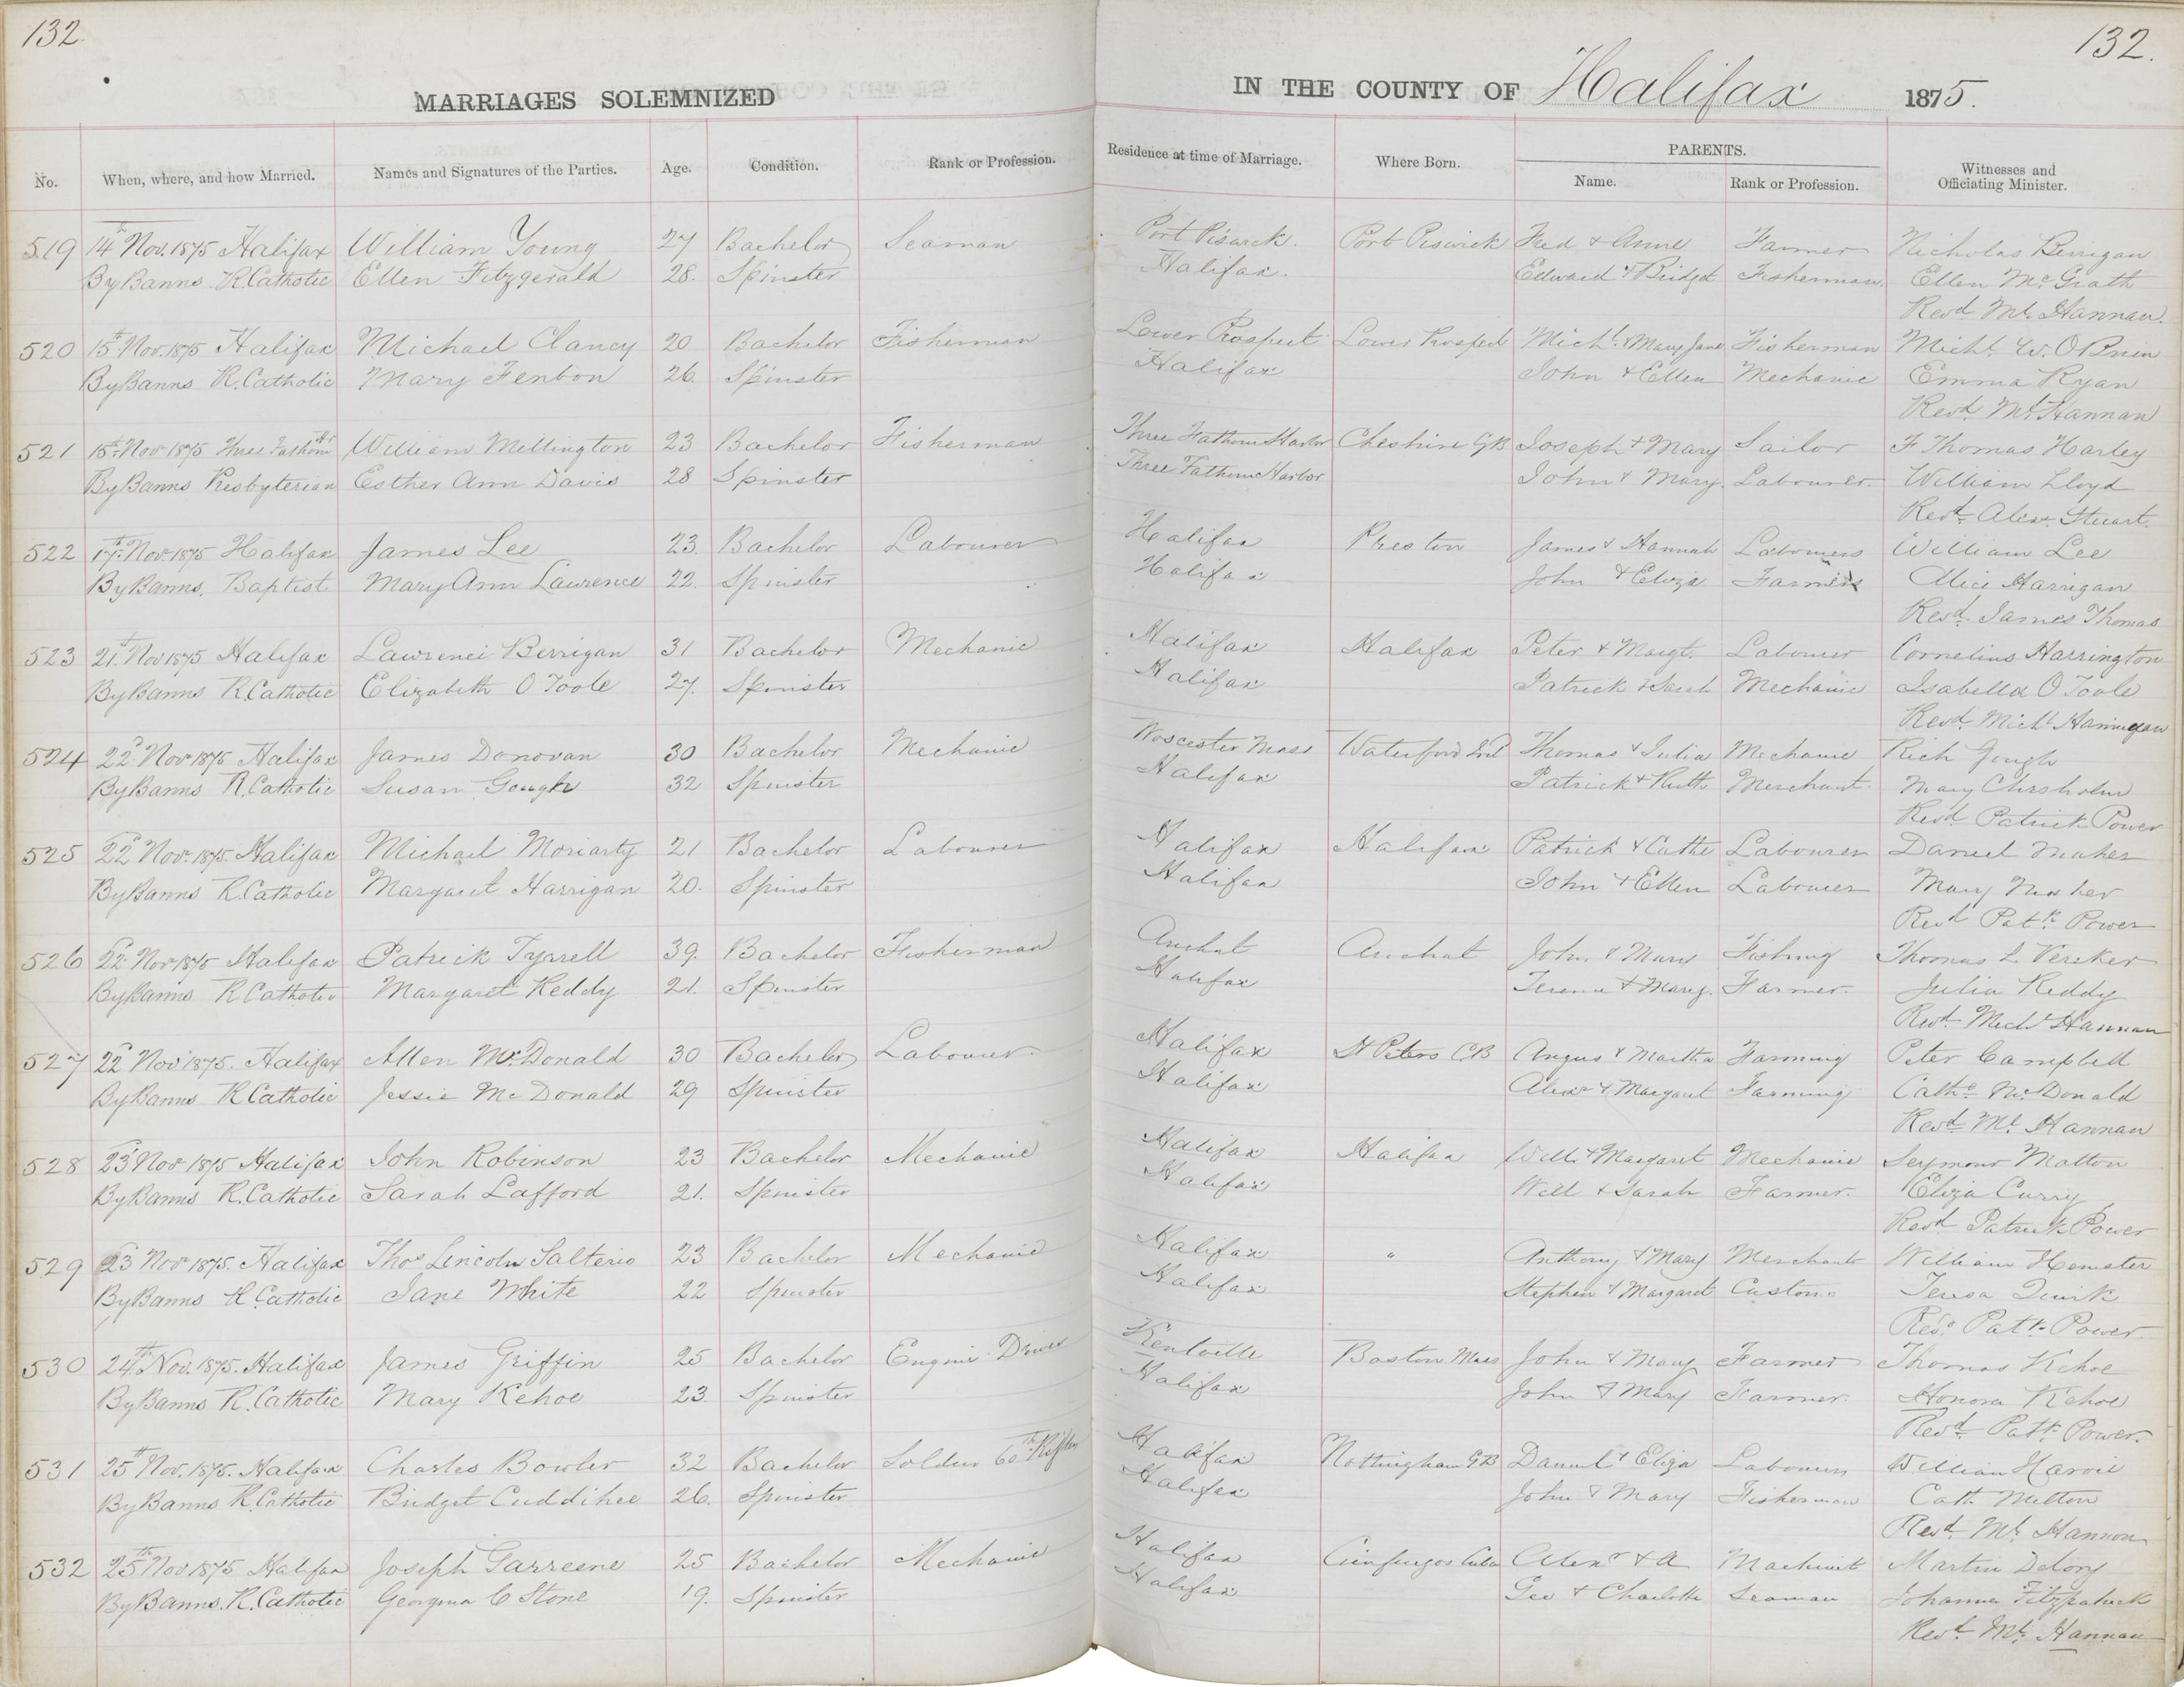 132.
132.
MARRIAGES SOLEMNIZED
IN THE COUNTY OF Halifax 1875.
No. When, where, and how Married. Names and Signatures of the Parties. Age. Condition. Rank or Profession. Residence at time of Marriage. Where Born. PARENTS. Name. Rank or Profession. Witnesses and Officiating Minister.
519 14th Nov. 1875 Halifax William Young 27 Bachelor Seaman Port Piswick. Port Piswick Fred & Anne Farmer Nicholas Berrigan
By Banns R. Catholic Ellen Fitzgerald 28. Spinster Halifax. Edward & Bridget Fisherman. Ellen McGrath
Revd. Ml. Hannan.
520 15th Nov. 1875 Halifax Michael Clancy 20 Bachelor Fisherman Lower Prospect Lower Prospect Michl. & Mary Jane Fisherman Michl. W. O Brien
By Banns R. Catholic Mary Fenton 26. Spinster Halifax John & Ellen Mechanic Emma Ryan
Revd. Ml. Hannan
521 15th Nov 1875 Three Fathom Hr William Mellington 23 Bachelor Fisherman Three Fathom Harbor Cheshire GB Joseph & Mary Sailor F Thomas Harley
By Banns Presbyterian Esther Ann Davis 28 Spinster Three Fathom Harbor John & Mary. Labourer. William Lloyd
Revd. Alexr. Stuart.
522 17th Nov. 1875 Halifax James Lee 23. Bachelor Labourer Halifax Preston James & Hannah Labourers William Lee
By Banns. Baptist Mary Ann Lawrence 22. Spinster Halifax John & Eliza Farmer Alice Harrigan
Revd. James Thomas
523 21st Nov 1875 Halifax Lawrence Berrigan 31 Bachelor Mechanic Halifax Halifax Peter & Margt. Labourer Cornelius Harrington
By Banns R. Catholic Elizabeth O Toole 27. Spinster Halifax Patrick & Sarah Mechanic Isabella O Toole
Revd. Michl Hannan
524 22d Nov 1875 Halifax James Donovan 30 Bachelor Mechanic Worcester Mass Waterford Irel Thomas & Julia Mechanic Rich Gough
By Banns R. Catholic Susan Gough 32 Spinster Halifax Patrick & Ruth Merchant. Mary Chisholm
Revd Patrick Power
525 22d Nov. 1875. Halifax Michael Moriarty 21 Bachelor Labourer Halifax Halifax Patrick & Cathe Labourer Daniel Maher
By Banns R. Catholic Margaret Harrigan 20. Spinster Halifax John & Ellen Labourer Mary Maher
Revd Patk Power
526 22d Nov 1875 Halifax Patrick Tyrrell 39. Bachelor Fisherman Arichat Arichat John & Mary Fishing Thomas L Vereker
By Banns R. Catholic Margaret Keddy 21. Spinster Halifax Terence & Mary. Farmer. Julia Keddy
Revd. Michl Hannan
527 22d Nov 1875. Halifax Allen McDonald 30 Bachelor Labourer. Halifax St Peters CB Angus & Martha Farming Peter Campbell
By Banns R. Catholic Jessie McDonald 29 Spinster Halifax Alexr & Margaret Farming Cathe McDonald
Revd Ml. Hannan
528 23d Nov 1875 Halifax John Robinson 23 Bachelor Mechanic Halifax Halifax Will. & Margaret Mechanic Seymour Matton
By Banns R. Catholic Sarah Lafford 21. Spinster Halifax Will & Sarah Farmer. Eliza Curry
Revd Patrick Power
529 23d Nov. 1875. Halifax Thos Lincoln Salterio 23 Bachelor Mechanic Halifax " Anthony & Mary Merchant William Hemster
By Banns R. Catholic Jane White 22 Spinster Halifax Stephen & Margaret Customs Teresa Quirk
Revd. Patk. Power.
530 24th Nov. 1875. Halifax James Griffin 25 Bachelor Engine Driver Kentville Boston Mass John & Mary Farmer Thomas Kehoe
By Banns R. Catholic Mary Kehoe 23. Spinster Halifax John & Mary Farmer. Honora Kehoe
Revd. Patk. Power.
531 25th Nov. 1875. Halifax Charles Bowler 32 Bachelor Soldier 60th Rifles Halifax Nottingham GB Daniel & Eliza Labourer William Harvie
By Banns R. Catholic Bridget Cuddihee 26. Spinster Halifax John & Mary Fisherman Cath Melton
Revd. Ml. Hannan
532 25th Nov 1875 Halifax Joseph Garreene 25 Bachelor Mechanic Halifax Cienfuegos Cuba Alexr & A Machinist Martin Delory
By Banns. R. Catholic Georgina C Stone 19. Spinster Halifax Geo & Charlotte Seaman Johanna Fitzpatrick
Revd. Ml. Hannan